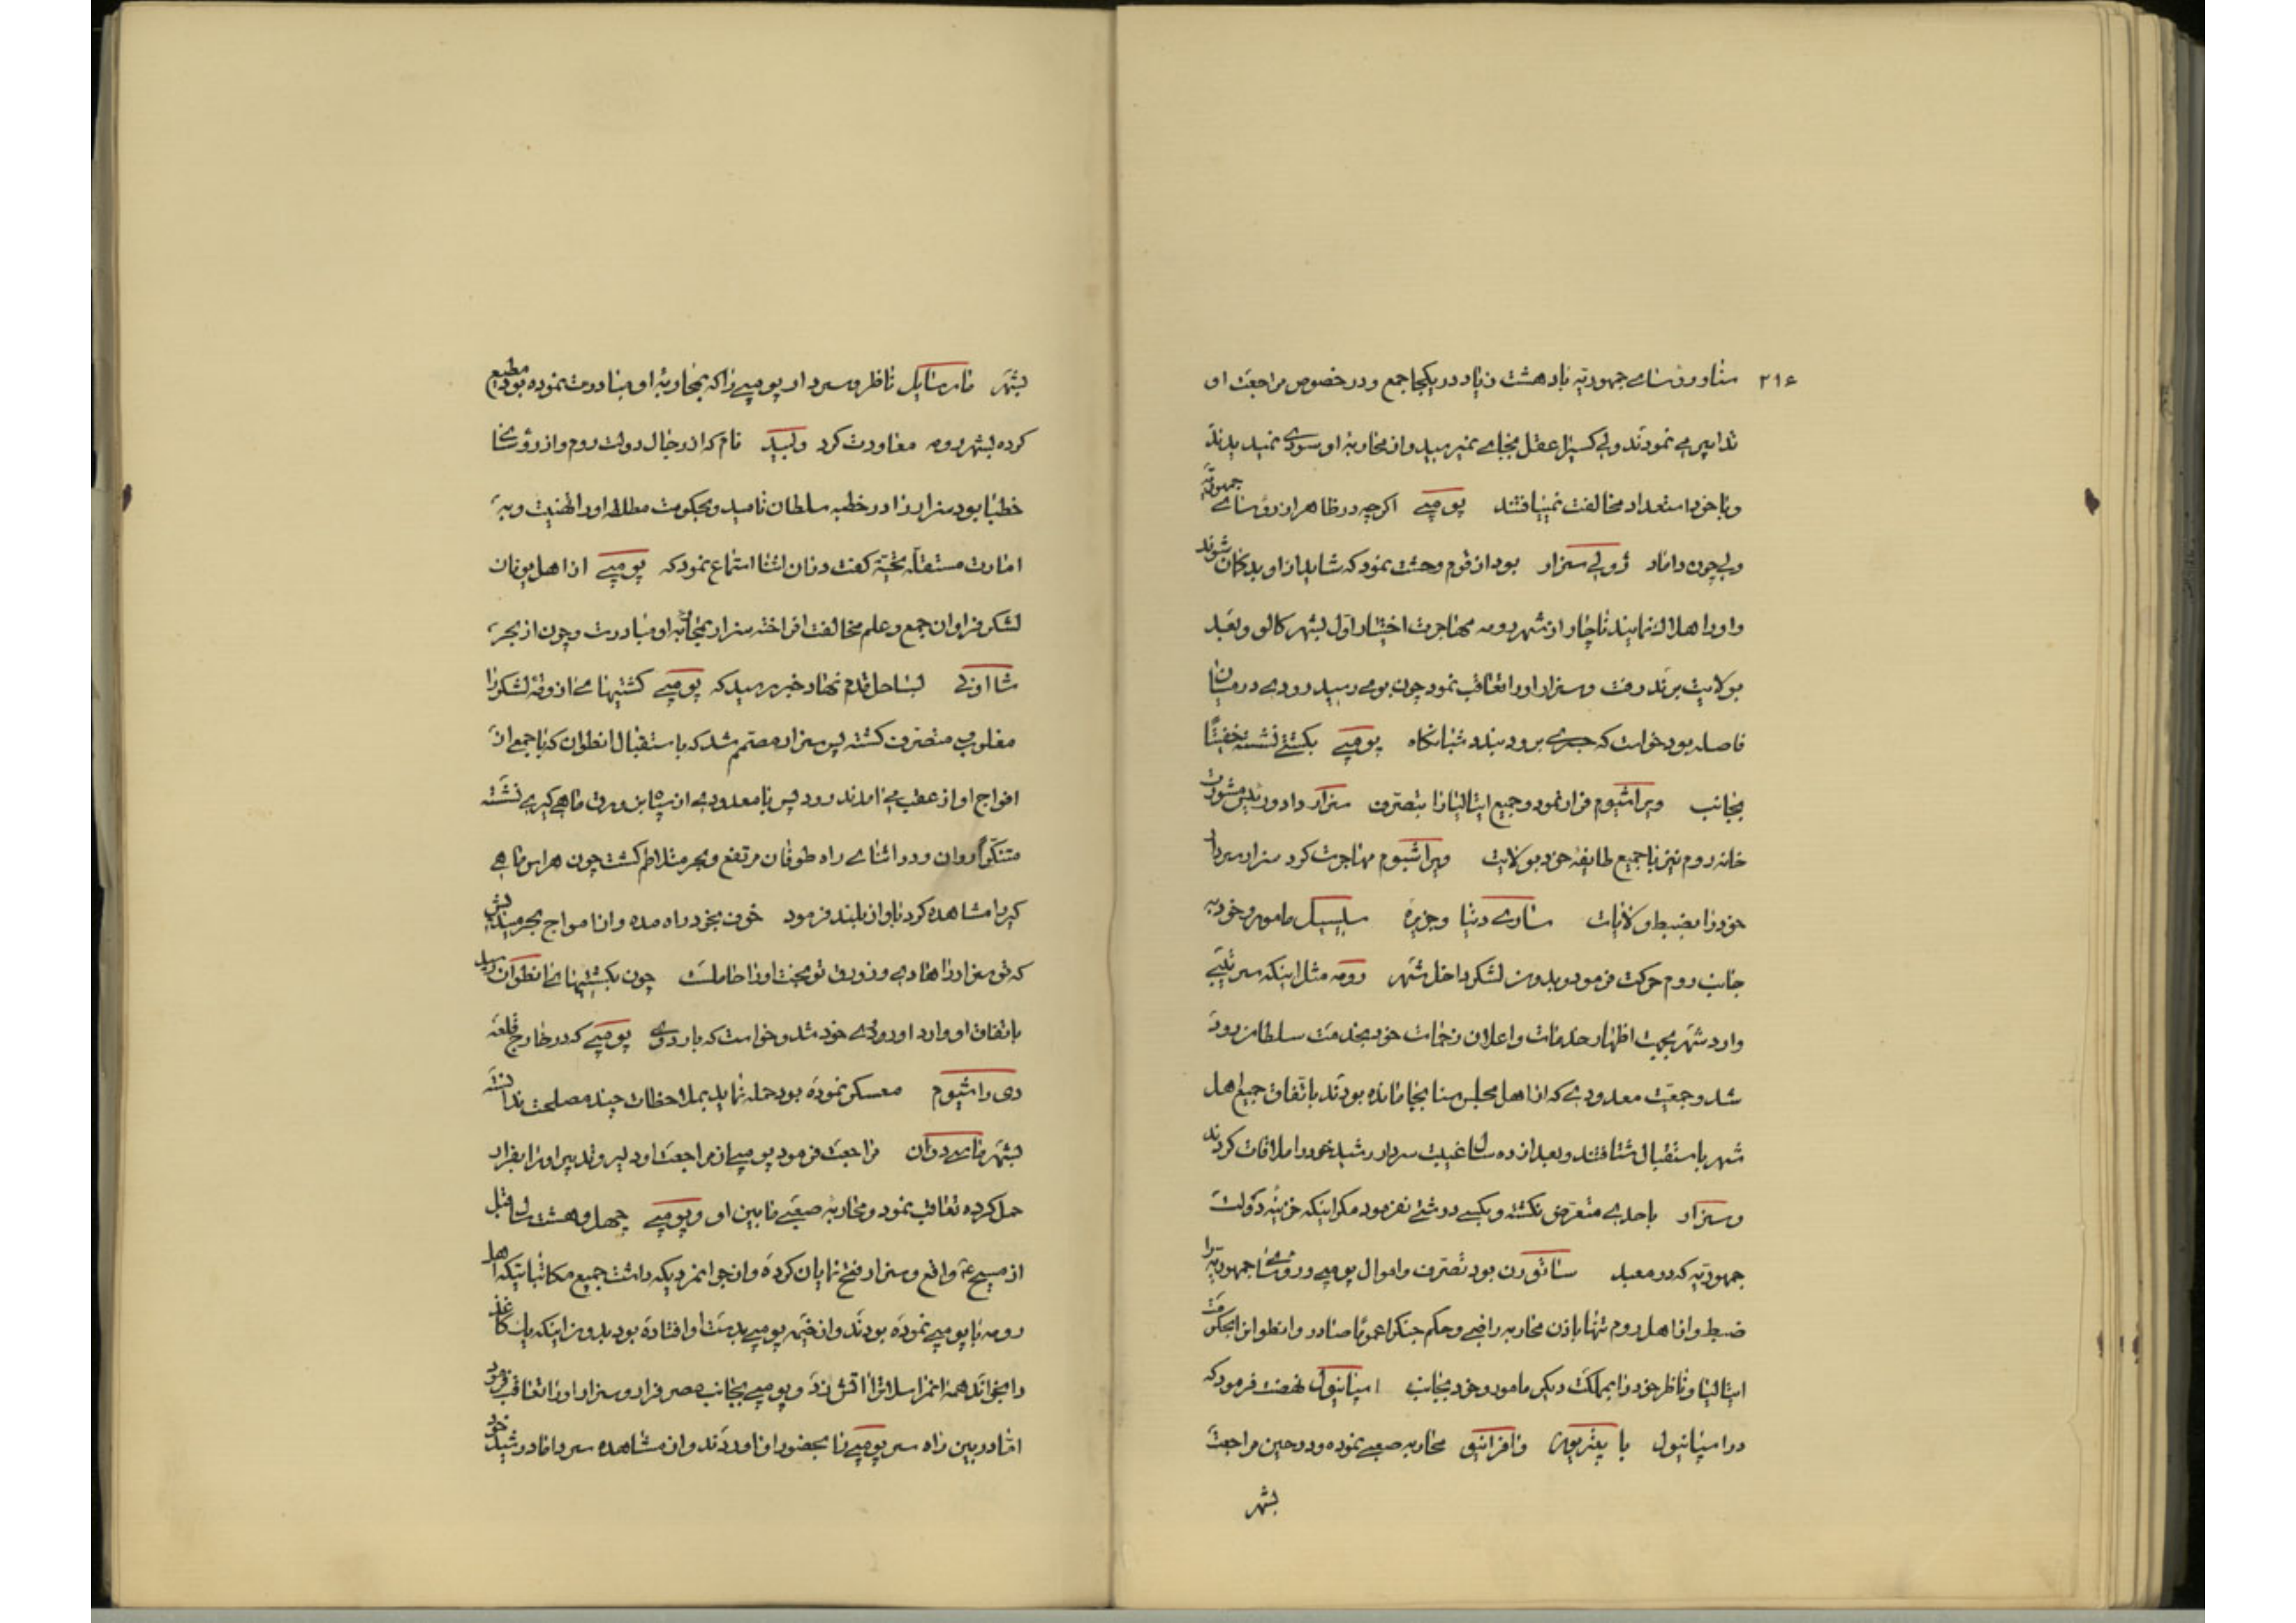 ۲۱۶
سنا و رؤسای جمهوریه با دهشت زیاد در یکجا جمع و در خصوص مراجعت او
تدابیر می نمودند ولی کسیرا عقل بجای نمیرسید و از محاربهٔ او سودی نمیدیدند
و با خود استعداد مخالفت نمییافتند پومپی اگرچه در ظاهر از رؤسای جمهوریه
ولی چون داماد ژولی سزار بود از قوم وحشت نمود که شاید از او بدکمان شوند
و او را هلاك نمایند ناچار از شهر رومه مهاجرت اختیار اول بشهر کالو و بعد
بولایت برند رفت و سزار او را تعاقب نمود چون بومی رسید رودی در میان
فاصله بود خواست که جسری برود ببندد شبانکاه پومپی بکشتی نشسته خفیتًا
بجانب ویراشیوم فرار نمود و جمیع ایتالیا را بتصرف سزار داد و رندیس مشورت
خانه روم نیز با جمیع طایفهٔ خود بولایت ویراشیوم مهاجرت کرد سزار سردار
خود را بضبط ولایات سناری دنیا و جزیرهٔ سلیسیل مامور و خود به
جانب روم حرکت فرمود و بدون لشکر داخل شهر رومه مثل اینکه سرتیپی
وارد شهر بجهت اظهار خدمات و اعلان زحمات خود بخدمت سلطان رود
شد و جمعیت معدودی که از اهل مجلس سنا بجا مانده بودند باتفاق جمیع اهل
شهر باستقبال شتافتند و بعد از ده سال غیبت سردار رشید خود را ملاقات کردند
و سزار باحدی متعرض نکشته و بکسی درشتی نفرمود مکر اینکه خزینهٔ دولت
جمهوریه که در معبد ساتورن بود تصرف و اموال پومپی و رؤسای جمهوریه را
ضبط و از اهل روم تنها باذن محاربه راضی و حکم جنك را عمومًا صادر و انطوان را بحکومت
ایتالیا و ناظر خود را بمملکت دیکر مامور و خود بجانب اسپانیول نهضت فرمود که
در اسپانیول با پتریوس و افرانیق محاربه صعبی نموده و در حین مراجعت
بشهر
بشهر مارسایل ناظر و سردار پومپی را که بمحاربهٔ او مبادرت نموده بود مطیع
کرده بشهر رومه معاودت کرد ولسید نام که از رجال دولت روم و از رؤسای
خطبا بود سزار را در خطبه سلطان نامید و بحکومت مطلقه او را تهنیت و به
امارت مستقله تحیّة کفت در آن اثنا استماع نمود که پومپی از اهل یونان
لشکر فراوان جمع و علم مخالفت افراخته سزار بمحاربهٔ او مبادرت و چون از بحر
شااونی بساحل قدم نهاد خبر رسید که پومپی کشتیهای آزوقهٔ لشکر را
مغلوب متصرف کشته پس سزار مصمم شد که باستقبال انطوان که با جمعی از
افواج او از عقب می امدند رود پس با معدودی از سپاه بزورق ماهی کیری نشسته
متنکرًا روان و در اثنای راه طوفان مرتفع و بحر متلاطم کشت چون هراس ماهی
کیر را مشاهده کرد باواز بلند فرمود خوف بخود راه مده و از امواج بحر میندیش
که تو سزار را هادی و زورق تو بخت او را حاملست چون بکشتیهای انطوان رسید
باتفاق او وارد اوردوی خود شد و خواست که باردوی پومپی که در خارج قلعه
دی راشیوم معسکر نموده بود حمله نماید بملاحظات چند مصلحت ندانسته
بشهر فارسدوان مراجعت فرمود پومپی از مراجعت او دلیر و تدبیر او را بفرار
حمل کرده تعاقب نمود و محاربهٔ صعبی مابین او و پومپی چهل و هشت سال قبل
از مسیح ع واقع و سزار فتح نمایان کرده و از جوانمردیکه داشت جمیع مکاتباتیکه اهل
رومه با پومپی نموده بودند و از خیمهٔ پومپی بدست او افتاده بود بدون اینکه یك کاغذ
را بخواند همهٔ انمراسلاترا اتش زد و پومپی بجانب مصر فرار و سزار او را تعاقب فرمود
اما در بین راه سر پومپی را بحضور او اوردند و از مشاهده سر داماد رشید خود